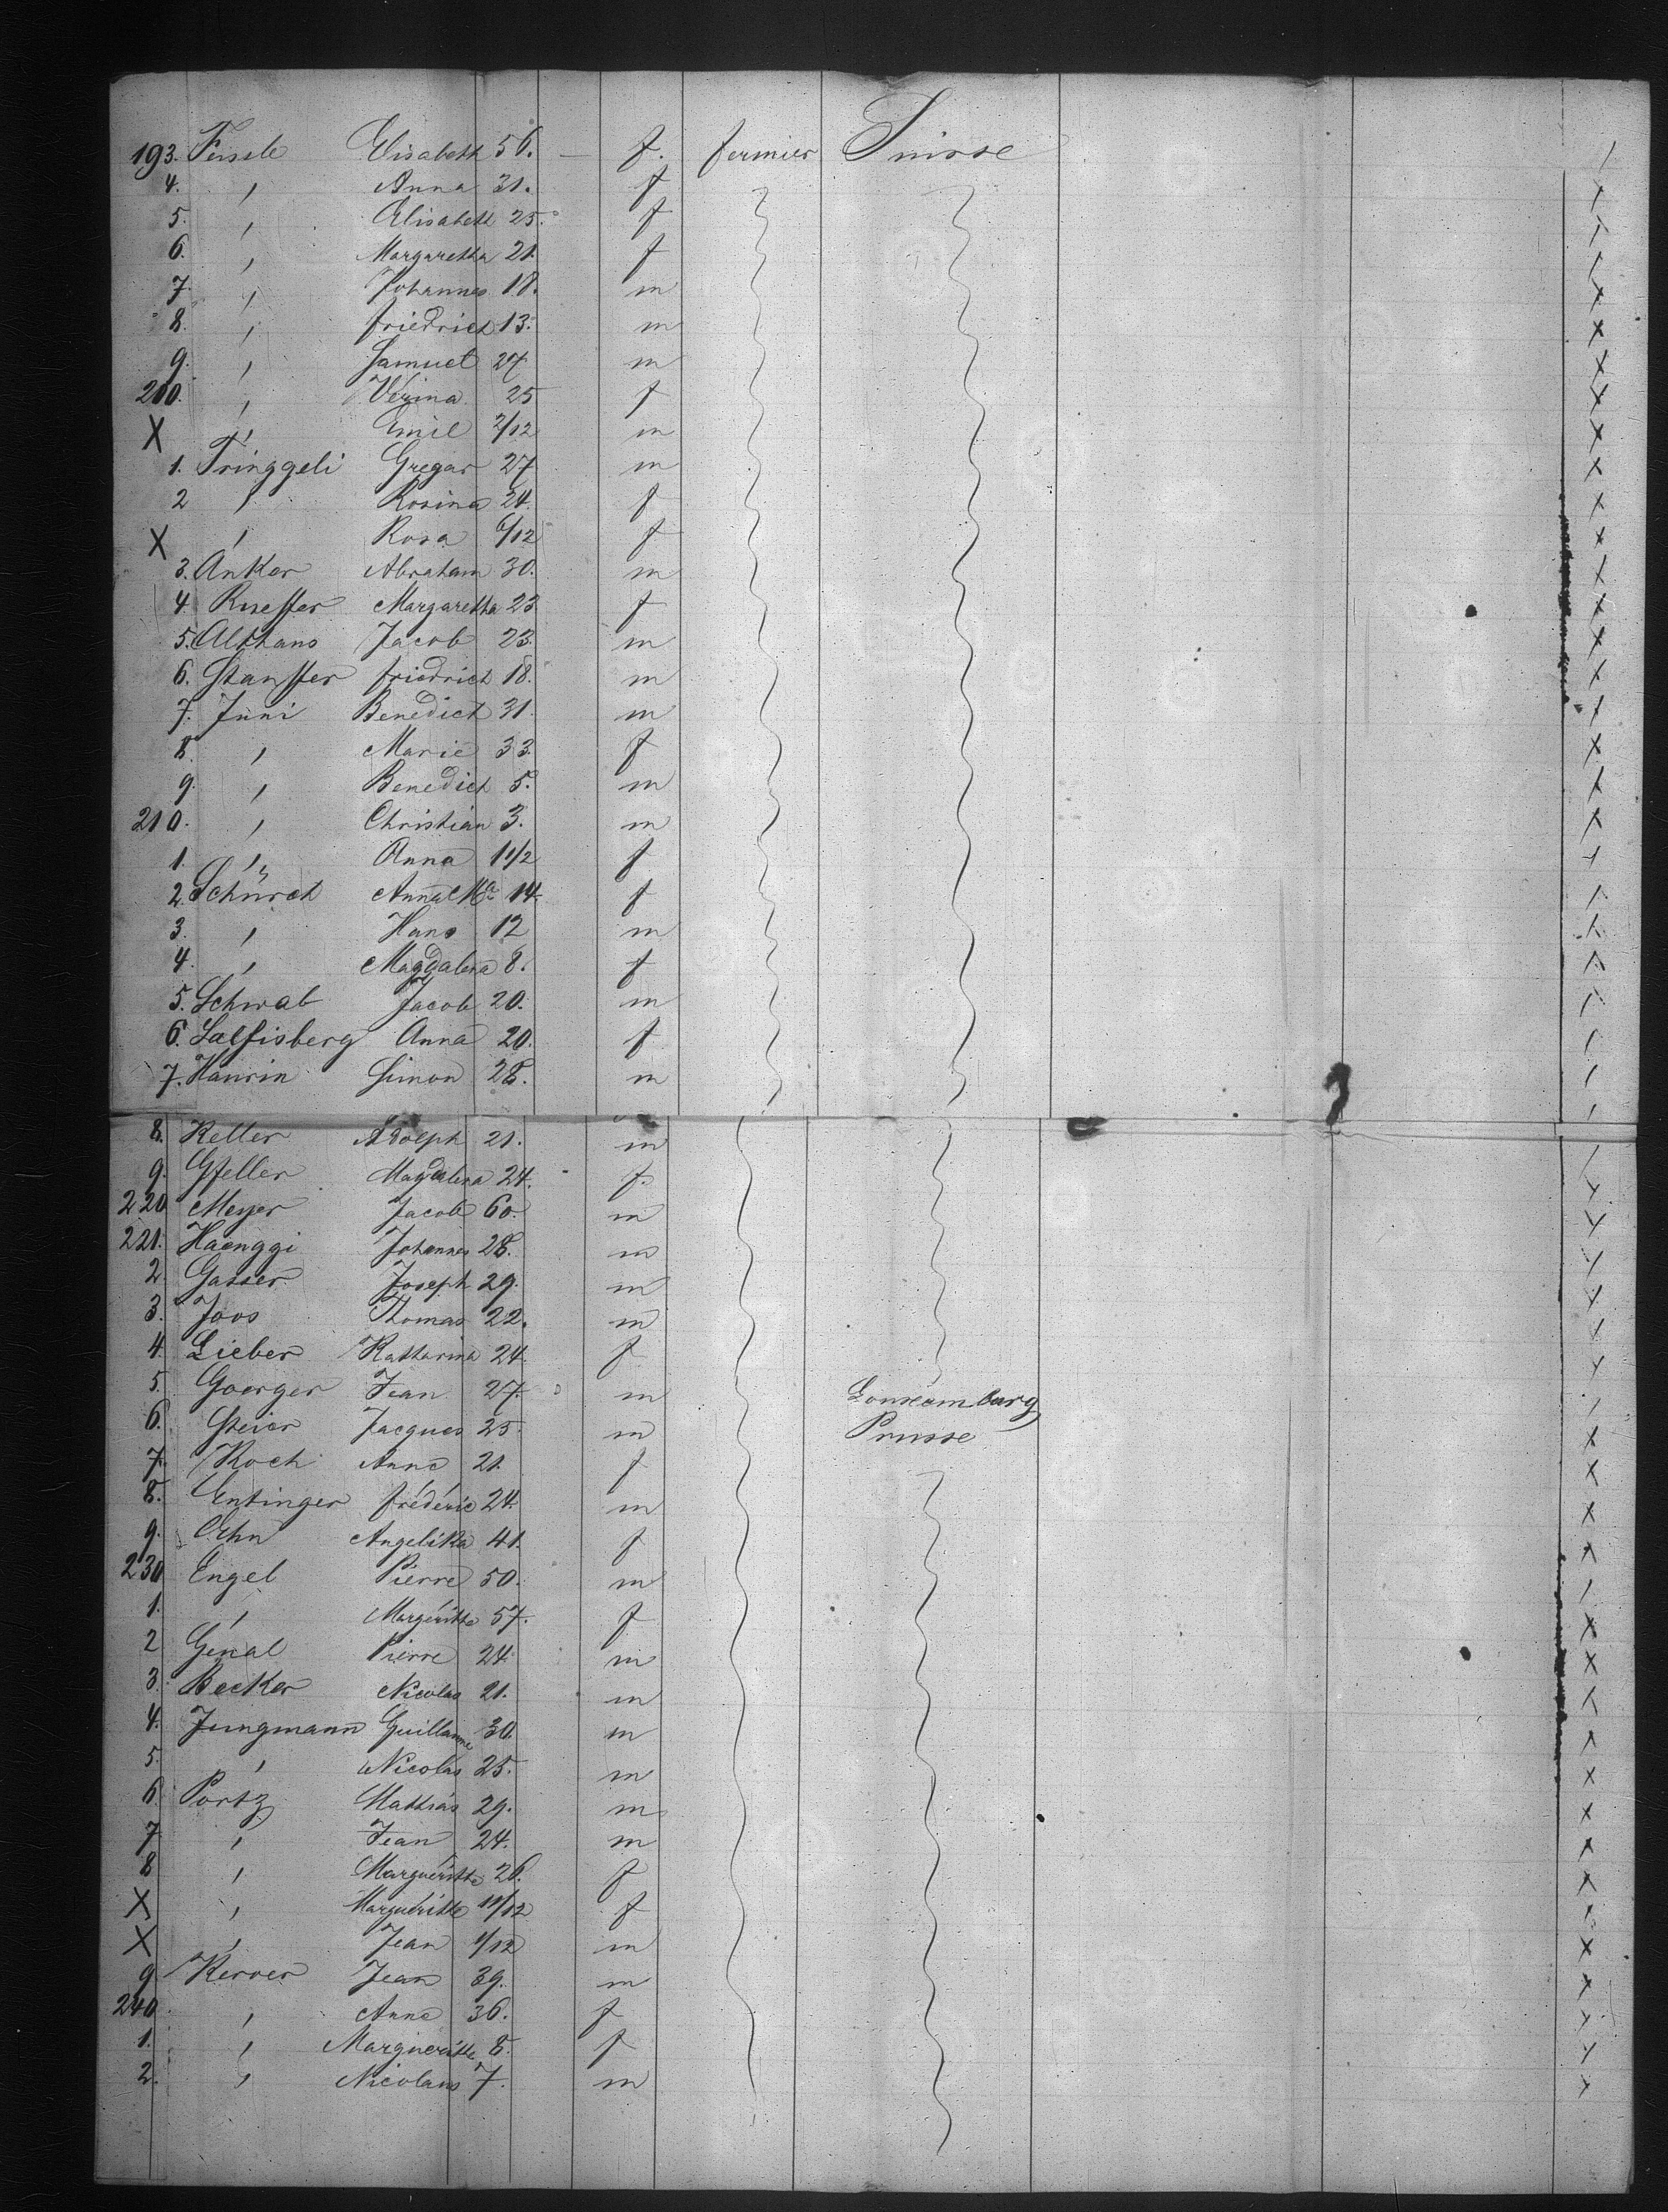 193. Feissle Elisabeth 56. – f. fermier Suisse /
4. " Anna 31. f X
5. " Elisabeth 25. f X
6. " Margaretha 21. f X
7. " Johannes 18. m X
8. " friedrich 13. m X
9. " Samuel 27 m X
200. " Vérina 25 f X
X " Emil 2/12 m X
1. Tringgeli Gregor 27 m X
2 " Rosina 24. f X
X " Rosa 6/12 f X
3. Anker Abraham 30. m X
4. Rueffer Margaretha 23 f X
5. Althans Jacob 23. m X
6. Stauffer friedrich 18. m X
7. Juni Benedict 31. m X
8. " Marie 33. f X
9. " Benedict 5. m X
210. " Christian 3. m X
1. " Anna 1 1/2 f X
2. Schürch Anna Ma 14. f X
3. " Hans 12 m X
4. " Magdalena 8. f X
5. Schwab Jacob 20. m /
6. Salfisberg Anna 20. f /
7. Hanrin Simon 28. m /
8. Keller Adolph 21. m /
9. Gfeller Magdalena 24. f. X
220 Meyer Jacob 60. m X
221. Haenggi Johannes 28. m X
2 Gasser Joseph 29. m X
3. Joos Thomas 22. m X
4 Lieber Katharina 24. f X
5. Goerger Jean 27. m Louxemburg /
6. Steier Jacques 25. m Prusse X
7. Koch Anne 21. f X
8. Entinger frédéric 24. m X
9. Ohn Angelika 41. f X
230 Engel Pierre 50. m /
1. " Margéritte 57. f X
2 Genal Pierre 24. m X
3. Becker Nicolas 21. m X
4. Jungmann Guillaume 30. m X
5. " Nicolas 25. m X
6 Portz Mathias 29. m X
7 " Jean 24. m X
8 " Marguéritte 26. f X
X " Marguéritte 11/12 f X
X " Jean 1/12 m X
9 Kerver Jean 39. m X
240 " Anne 36. f X
1. " Margueritte 8. f X
2. " Nicolaus 7. m X